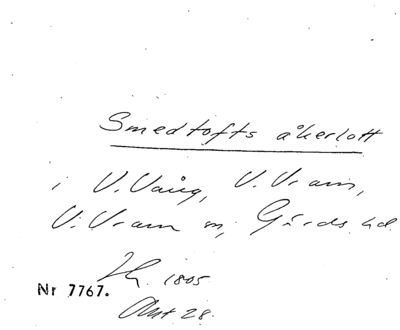 Smedtofts åkerlott
i V. Vång, V. Vram,
V. Vram sn, Gärds hd.
1805
Nr 7767.
Akt 28.